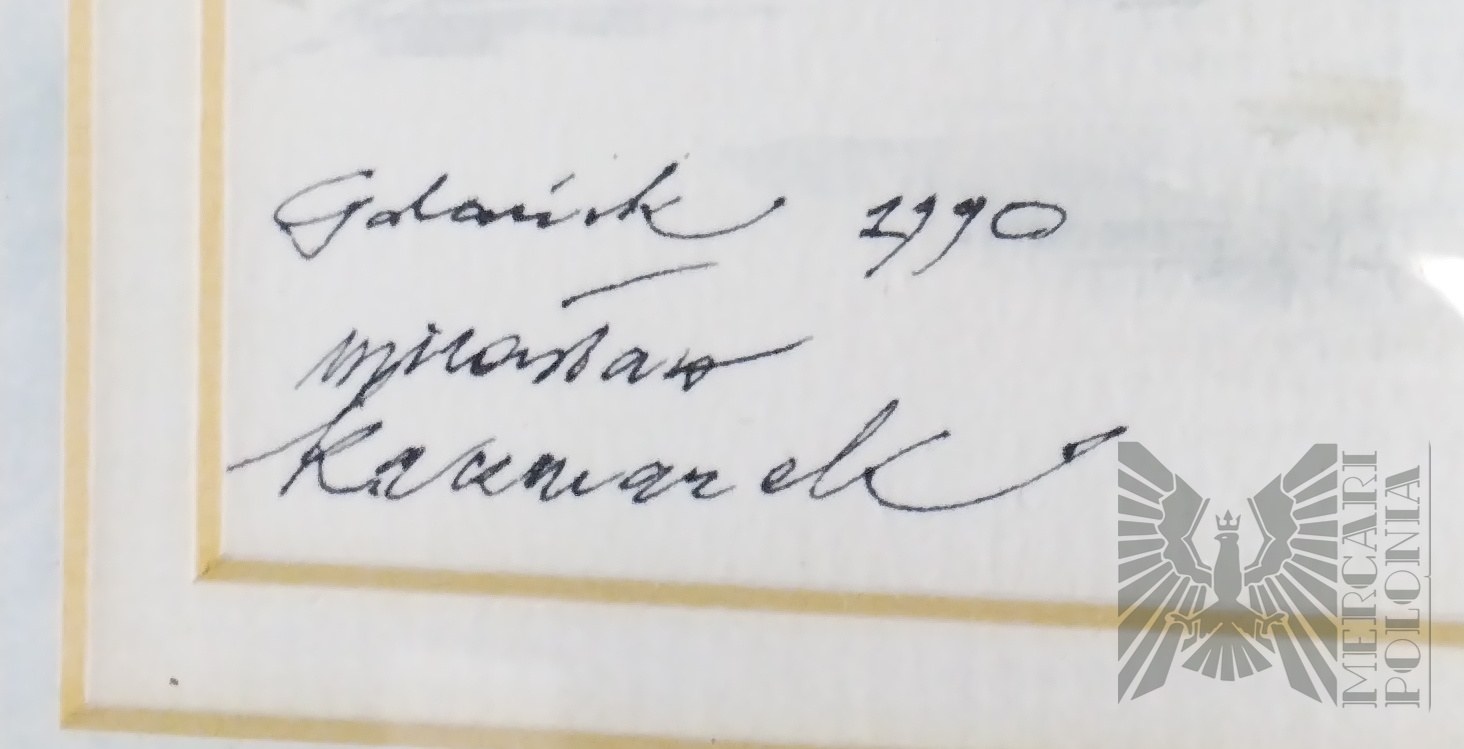 Gdańsk 1990
Mirosław
Kaczmarek
MERCARI
POLONIA